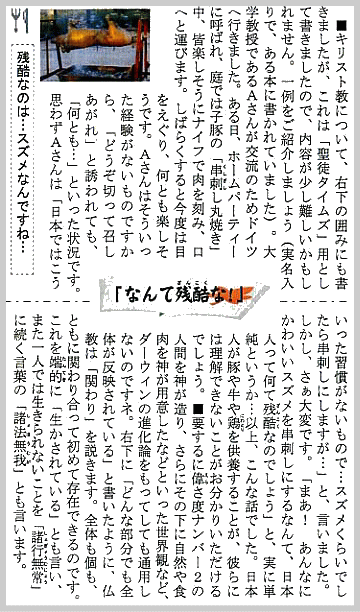 ■キリスト教について、右下の囲みにも書
きましたが、これは「聖徒タイムズ」用とし
て書きましたので、内容が少し難しいかもし
れません。一例をご紹介しましょう(実名入
りで、ある本に書かれていました)。大
学教授であるAさんが交流のためドイツ
へ行きました。ある日、ホームパーティー
に呼ばれ、庭では子豚の「串刺し丸焼き」
中、皆楽しそうにナイフで肉を刻み、口
へと運びます。しばらくすると今度は目
をえぐり、何とも楽しそ
うです。Aさんはそういっ
た経験がないものですか
ら、「どうぞ切って召し
あがれ」と誘われても、
「何とも…」といった状況です。
思わずAさんは「日本ではこう
残酷なのは…スズメなんですね…
「なんて残酷な!」
いった習慣がないもので…スズメくらいでし
たら串刺しにしますが…」と、言いました。
しかし、さぁ大変です。「まあ! あんなに
かわいいスズメを串刺しにするなんて、日本
人って何て残酷なのでしょう」と、実に単
純というか…以上、こんな話でした。日本
人が豚や牛や鶏を供養することが、彼らに
は理解できないことがお分かりいただける
でしょう。■要するに偉さ度ナンバー2の
人間を神が造り、さらにその下に自然や食
肉を神が用意したなどといった世界観など、
ダーウィンの進化論をもってしても通用し
ないのですネ。右下に「どんな部分でも全
体が反映されている」と書いたように、仏
教は「関わり」を説きます。全体も個も、
ともに関わり合って初めて存在できるのです。
これを端的に「生かされている」とも言い、
また「一人では生きられないことを「諸行無常」
に続く言葉の「諸法無我」とも言います。